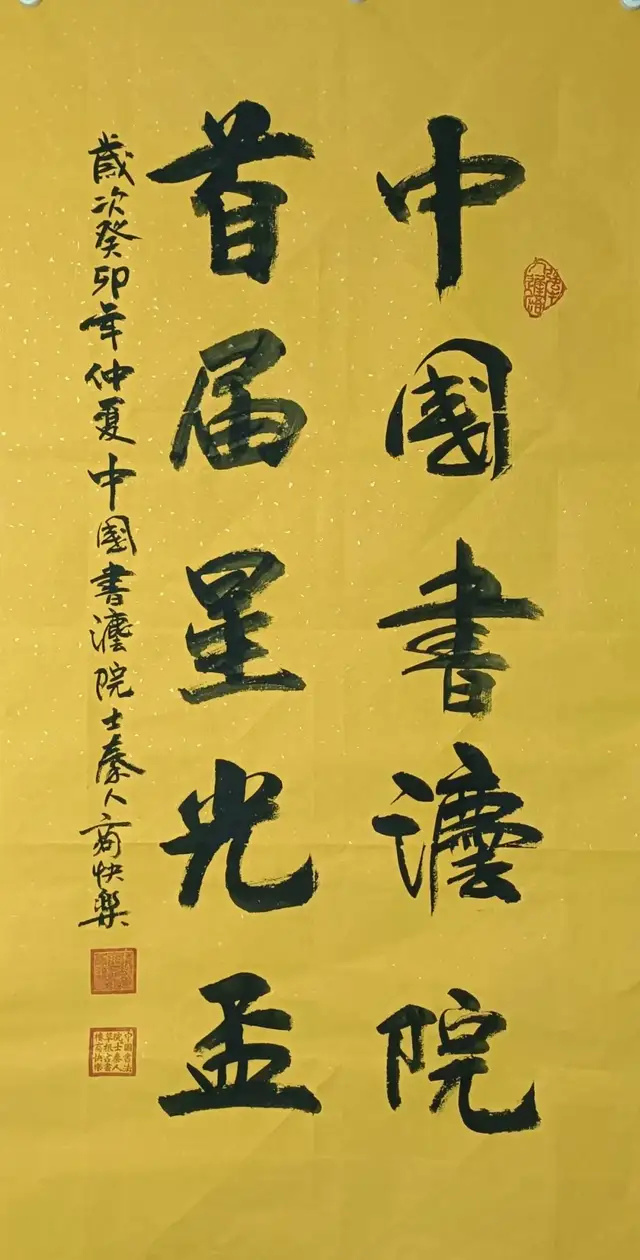 中國書灋院
首届星光盃
歲次癸卯年仲夏中國書灋院士秦人商快樂
中國書法
院士秦人